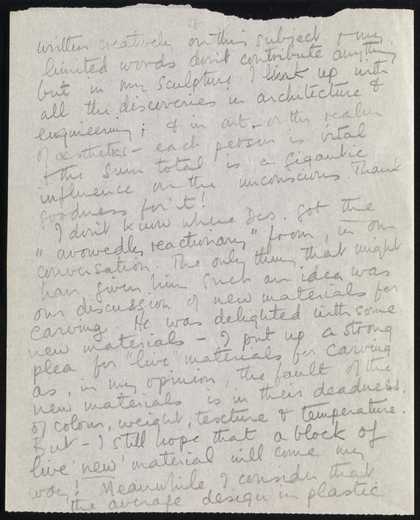 written creatively on this subject & my
limited words don't contribute anything
but in my sculpture I link up with
all the discoveries in architecture &
engineering; & in art - or the realm
of aesthetics - each person is vital
& the sum total is a gigantic
influence on the unconscious. Thank
goodness for it!
I don't know where Des. got the
"avowedly reactionary" from, in our
conversation. The only thing that might
have given him such an idea was
our discussion of new materials for
carving. He was delighted with some
new materials - I put up a strong
plea for "live" materials for carving
as, in my opinion, the fault of the
new materials is in their deadness,
of colour, weight, texture & temperature.
But - I still hope that a block of
live 'new' material will come my
way! Meanwhile I consider that
the average design in plastic